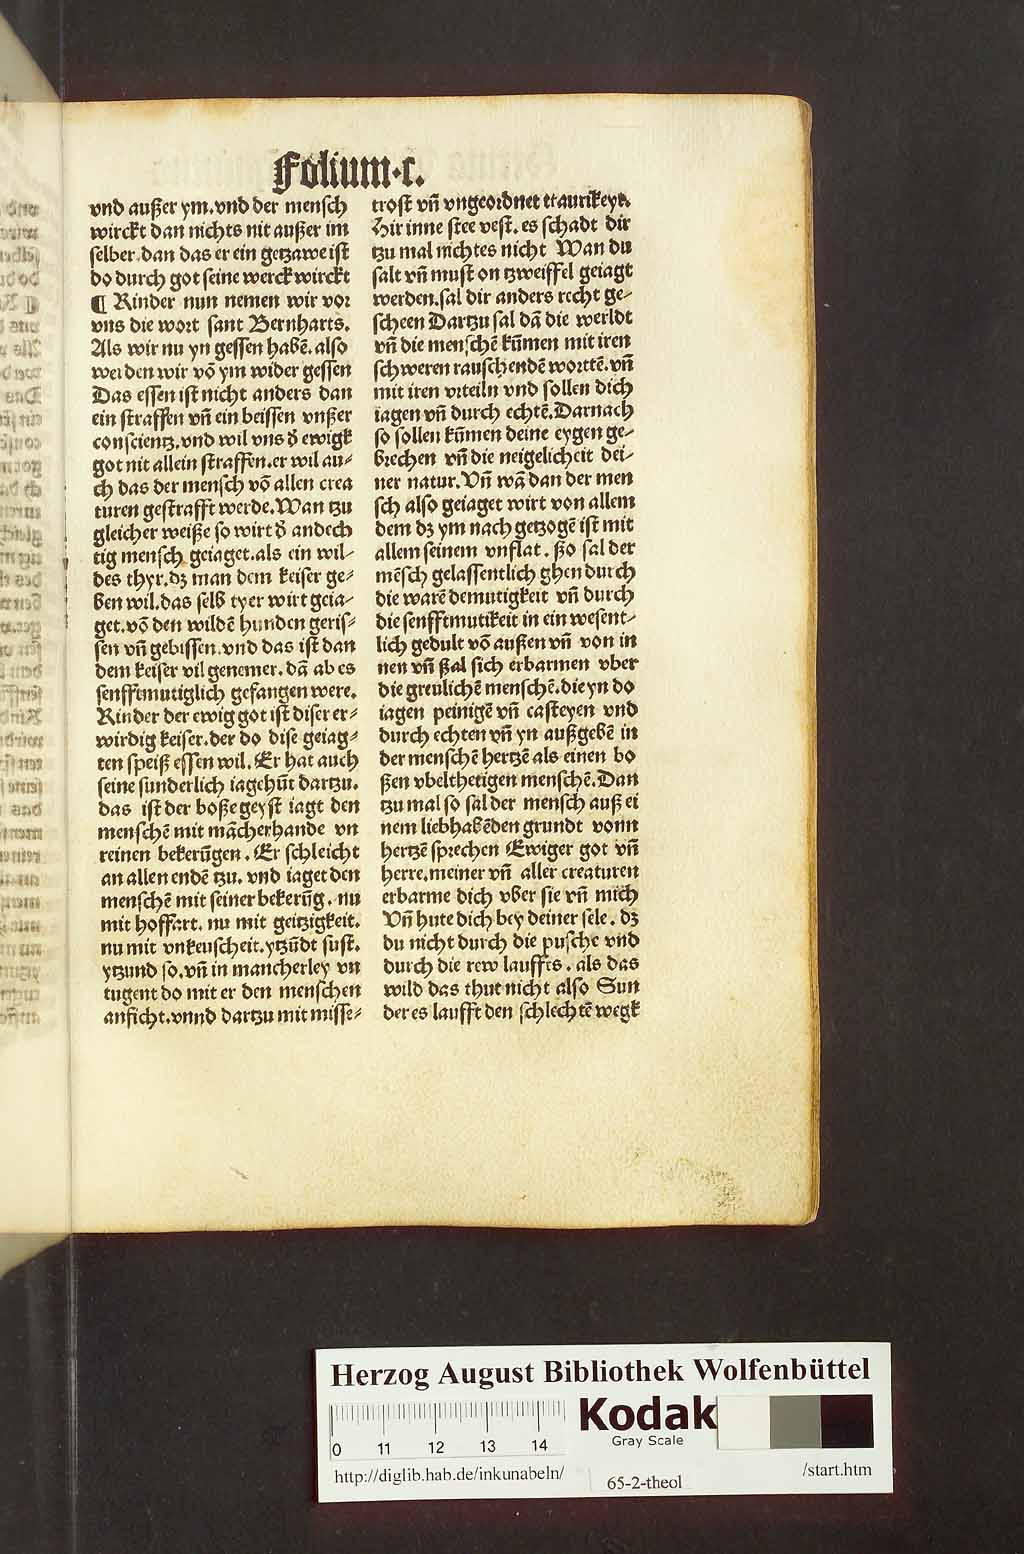 Folium·c.
vnd außer ym. vnd der mensch
wirckt dan nichts nit außer im
selber. dan das er ein getzawe ist
do durch got seine werck wirckt
¶ Kinder nun nemen wir vor
vns die wort sant Bernharts.
Als wir nu yn gessen habē. also
werden wir vō ym wider gessen
Das essen ist nicht anders dan
ein straffen vn̄ ein beissen vnßer
conscientz. vnd wil vns d̄ ewigk
got nit allein straffen. er wil au⸗
ch das der mensch vō allen crea
turen gestrafft werde. Wan tzu
gleicher weiße so wirt d̄ andech
tig mensch geiaget. als ein wil⸗
des thyr. dz man dem keiser ge⸗
ben wil. das selb tyer wirt geia⸗
get. vō den wildē hunden geris⸗
sen vn̄ gebissen. vnd das ist dan
dem keiser vil genemer. dā ab es
senfftmutiglich gefangen were.
Kinder der ewig got ist diser er⸗
wirdig keiser. der do dise geiag⸗
ten speiß essen wil. Er hat auch
seine sunderlich iagehūt dartzu.
das ist der boße geyst iagt den
menschē mit mācherhande vn
reinen bekerūgen. Er schleicht
an allen endē tzu. vnd iaget den
menschē mit seiner bekerūg. nu
mit hoffart. nu mit geitzigkeit.
nu mit vnkeuscheit. ytzūdt sust.
ytzund so. vn̄ in mancherley vn
tugent do mit er den menschen
anficht. vnnd dartzu mit misse⸗
trost vn̄ vngeordnet traurikeyt.
Hir inne stee vest. es schadt dir
tzu mal nichtes nicht Wan du
salt vn̄ must on tzweiffel geiagt
werden. sal dir anders recht ge⸗
scheen Dartzu sal dā die werldt
vn̄ die menschē kūmen mit iren
schweren rauschendē worttē. vn̄
mit iren vrteiln vnd sollen dich
iagen vn̄ durch echtē. Darnach
so sollen kūmen deine eygen ge⸗
brechen vn̄ die neigelicheit dei⸗
ner natur. Vn̄ wā dan der men
sch also geiaget wirt von allem
dem dz ym nach getzogē ist mit
allem seinem vnflat. ßo sal der
mēsch gelassentlich ghen durch
die warē demutigkeit vn̄ durch
die senfftmutikeit in ein wesent⸗
lich gedult vō außen vn̄ von in
nen vn̄ ßal sich erbarmen vber
die greulichē menschē. die yn do
iagen peinigē vn̄ casteyen vnd
durch echten vn̄ yn außgebē in
der menschē hertzē als einen bo
ßen vbelthetigen menschē. Dan
tzu mal so sal der mensch auß ei
nem liebhabēden grundt vonn
hertzē sprechen Ewiger got vn̄
herre. meiner vn̄ aller creaturen
erbarme dich vber sie vn̄ mich
Vn̄ hute dich bey deiner sele. dz
du nicht durch die pusche vnd
durch die rew lauffts. als das
wild das thut nicht also Sun
der es laufft den schlechtē wegk
Herzog August Bibliothek Wolfenbüttel
0 11 12 13 14
Kodak
Gray Scale
http://diglib.hab.de/inkunabeln/ 65-2-theol /start.htm